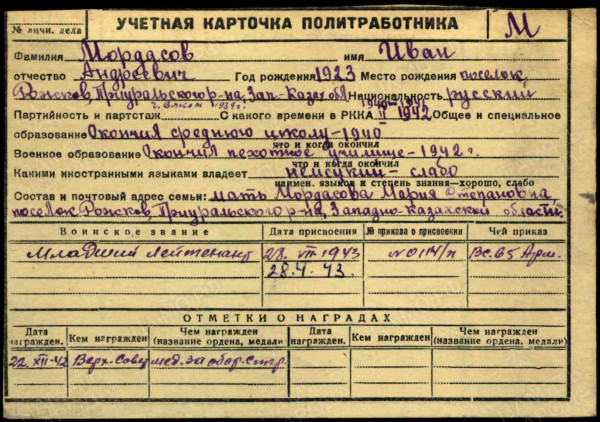 № личн. дела УЧЕТНАЯ КАРТОЧКА ПОЛИТРАБОТНИКА М
Фамилия Мордасов имя Иван
отчество Андреевич Год рождения 1923 Место рождения поселок
Рожков, Приуральского р-на Зап-Казах обл Национальность русский
Партийность и партстаж С какого времени в РККА II 1942 Общее и специальное
образование Окончил среднюю школу-1940
что и когда окончил
Военное образование Окончил пехотное училище-1942 г.
что и когда окончил
Какими иностранными языками владеет немецкий-слабо
наимен. языков и степень знания—хорошо, слабо
Состав и почтовый адрес семьи: мать Мордасова Мария Степановна,
поселок Рожков, Приуральского р-на, Западно-Казахской области.
Воинское звание Дата присвоения № приказа о присвоении Чей приказ
Младший лейтенант 28. VII 1943 №0114/п Вс. 65 Арм.
28.4.43.
ОТМЕТКИ О НАГРАДАХ
Дата награжден. Кем награжден Чем награжден (название ордена, медали) Дата награжден. Кем награжден Чем награжден (название ордена, медали)
22 XII-42 Верх. Совет мед. За обор. Стгр.